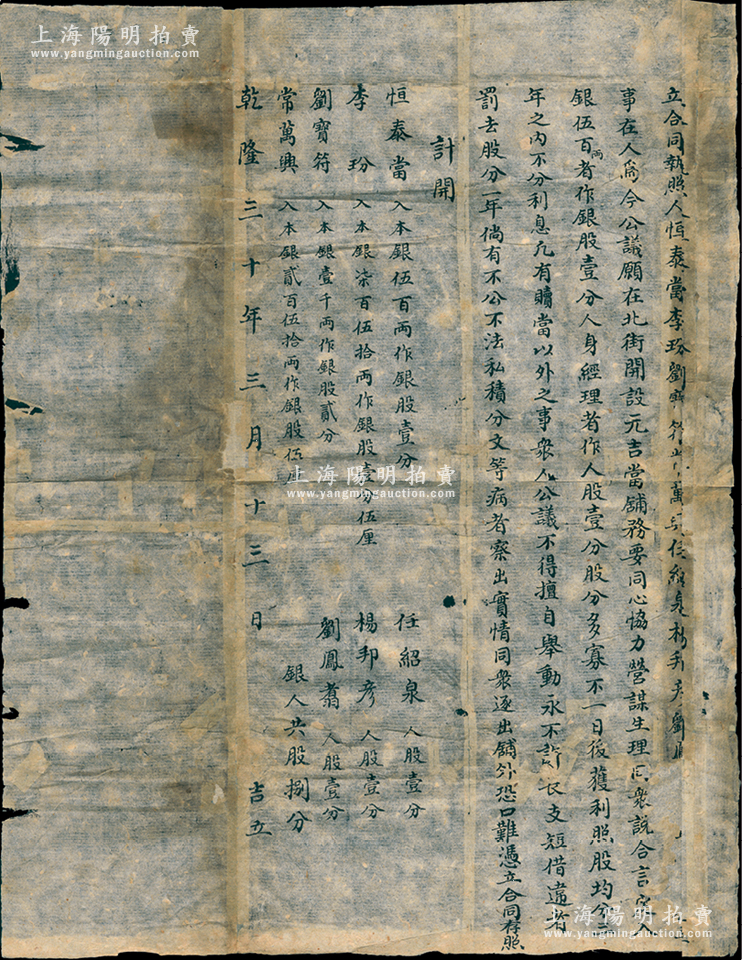 上海陽明拍賣
www.yangmingauction.com
上海陽明拍賣
www.yangmingauction.com
立合同執照人恒泰當李玢劉
事在人為今公議願在北街開設元吉當舖務要同心協力營謀生理同衆説合言
銀伍百兩者作銀股壹分人身經理者作人股壹分股分多寡不一日後獲利照股均分
年之内不分利息凡有贖當以外之事衆人公議不得擅自舉動永不許長支短借違者
罰去股分一年倘有不公不法私積分文等病者察出實情同衆逐出舖外恐口難憑立合同存照
計開
恒泰當 入本銀伍百兩作銀股壹分 任紹泉 人股壹分
李玢 入本銀柒百伍拾兩作銀股壹分伍厘 楊邦彥 人股壹分
劉寶符 入本銀壹千兩作銀股貳分 劉鳳翥 人股壹分
常萬興 入本銀貳百伍拾兩作銀股伍厘 銀人共股捌分
乾隆三十年三月二十三日 吉立
上海陽明拍賣
www.yangmingauction.com
上海陽明拍賣
www.yangmingauction.com
上海陽明拍賣
www.yangmingauction.com